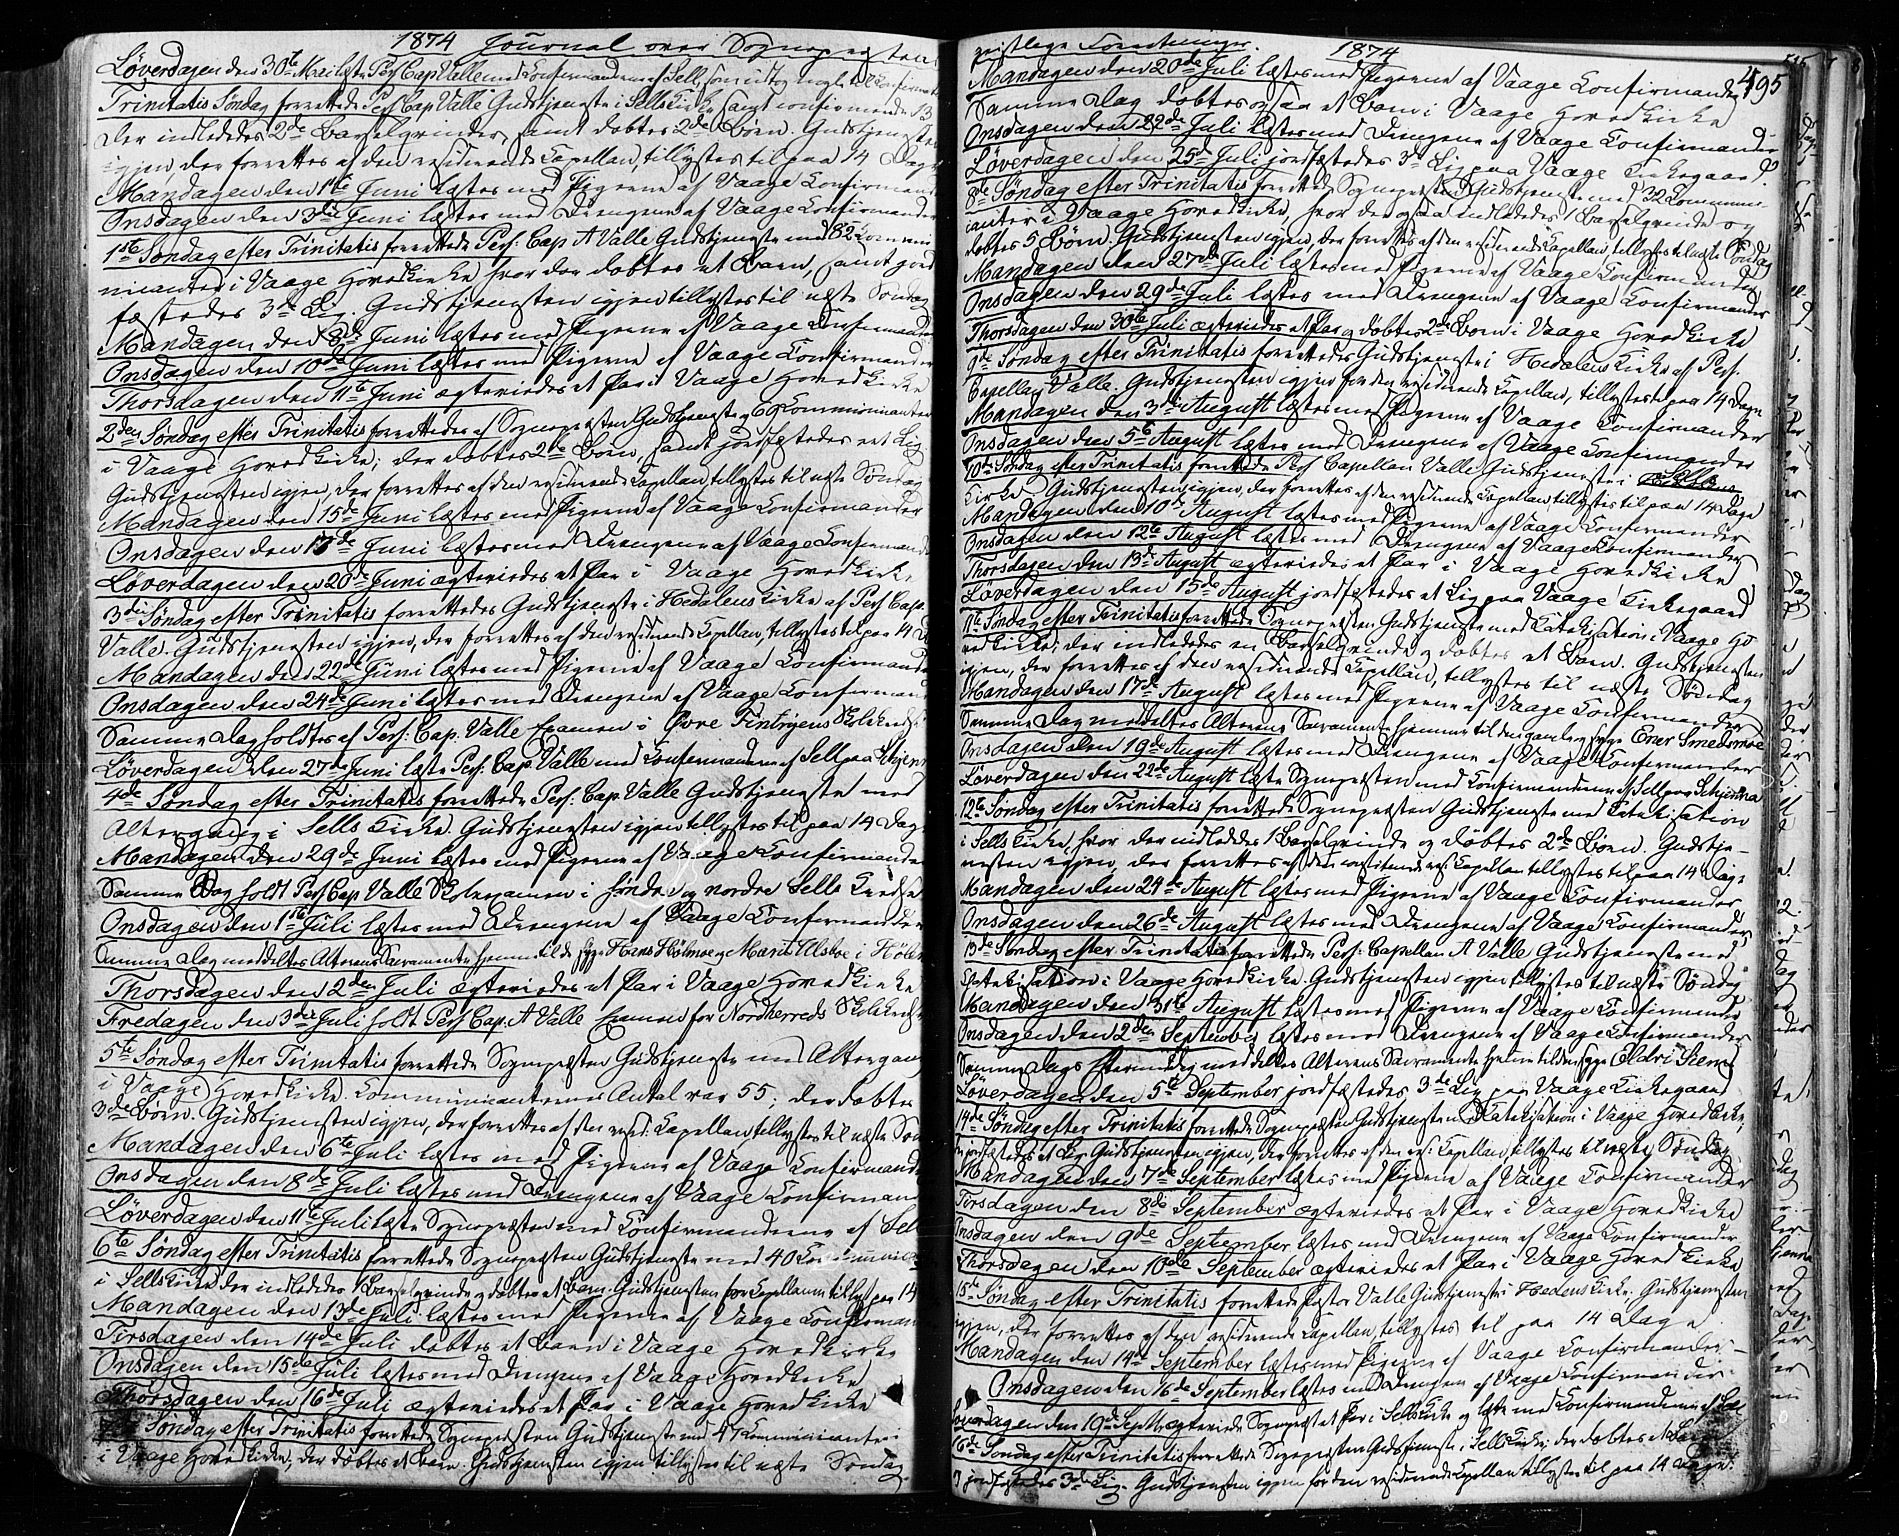 1874 Journal over Sognepræsten
Løverdagen den 30te Mai læste Pers: Cap. Valle med Confirmanderne af Sell, som
Trinitatis Søndag forrettede Pers: Cap. Valle Gudstjeneste i Sells Kirke, samt confirmerede 13
Der indlededes 2de Barselqvinder, samt døbtes 2de Børn. Gudstjenesten
igjen, der forrettes af den residerende Capellan, tillystes til paa 14 Dage
Mandagen den 1te Juni læstes med Pigerne af Vaage Confirmand
Onsdagen den 3die Juni læstes med Drengene af Vaage Confirmander
1ste Søndag efter Trinitatis forrettede Pers: Cap. A Valle Gudstjeneste med 82 Commu
nicanter i Vaage Hovedkirke, hvor der døbtes et Barn, samt jord
fæstedes 3de Lig. Gudstjenesten igjen tillystes til næste Søndag
Mandagen den 8de Juni læstes med Pigerne af Vaage Confirmander
Onsdagen den 10de Juni læstes med Pigerne af Vaage Confirmander
Thorsdagen den 11te Juni ægteviedes et Par i Vaage Hovedkirke
2den Søndag efter Trinitatis forrettedes af Sognepræsten Gudstjeneste 69 Communicanter
i Vaage Hovedkirke; der døbtes 2de Børn, samt jordfæstedes eet Lig
Gudstjenesten igjen, der forrettes af den residerende Capellan, tillystes til næste Søndag
Mandagen den 15de Juni læstes med Pigerne af Vaage Confirmander
Onsdagen den 17de Juni læstes med Drengene af Vaage Confirmand
Løverdagen den 20de Juni ægteviedes et Par i Vaage Hovedkirke
3die Søndag efter Trinitatis forrettedes Gudstjeneste i Hedalens Kirke af Pers: Cap.
Valle. Gudstjenesten igjen, der forrettes af den residerende Capellan, tillystes til paa 14 D
Mandagen den 22de Juni læstes med Pigerne af Vaage Confirmand
Onsdagen den 24de Juni læstes med Drengene af Vaage Confirmand
Samme Dag holdtes af Pers: Cap. Valle Examen i Øvre Finbøens Skolekreds
Løverdagen den 27de Juni læste Pers: Cap. Valle med Confirmanderne af Sell paa Schjen
4de Søndag efter Trinitatis forrettede Pers: Cap. Valle Gudstjeneste med
Altergang i Sells Kirke. Gudstjenesten igjen tillystes til paa 14 Dage
Mandagen den 29de Juni læstes med Pigerne af Vaage Confirmander
Samme Dag holdt Pers: Cap. Valle Skoleexamen i søndre og nordre Sells Kredse
Onsdagen den 1ste Juli læstes med Drengene af Vaage Confirmander
Samme Dag meddeltes Alterens Sacramente hjemme til de syge Hans Holmøe og Marie Ulsboe i
Thorsdagen den 2den Juli ægteviedes et Par i Vaage Hovedkirke
Fredagen den 3die Juli holdt Pers: Cap. A Valle Examen for Nordherreds Skolekreds
5te Søndag efter Trinitatis forrettede Sognepræsten Gudstjeneste med Altergang
i Vaage Hovedkirke. Communicanternes Antal var 55; der døbtes
3de Børn. Gudstjenesten igjen, der forrettes af den resid: Capellan tillystes til næste Søn
Mandagen den 6te Juli læstes med Pigerne af Vaage Confirmand
Onsdagen den 8de Juli læstes med Drengene af Vaage Confirmand
Løverdagen den 11te Juli læste Sognepræsten med Confirmanderne af Sell
6te Søndag efter Trinitatis forrettede Sognepræsten Gudstjeneste med 40 Communica
i Sells Kirke der indlededes 1 Barselqvinde og døbtes et Barn. Gudstjenesten for Capellanen tillyst paa 14
Mandagen den 13de Juli læstes med Pigerne af Vaage Confirmand
Tirsdagen den 14de Juli døbtes et Barn i Vaage Hovedkirke
Onsdagen den 15de Juli læstes med Drengene af Vaage Hovedkirke
Thorsdagen den 16de Juli ægteviedes et Par i Vaage Hovedkirke
7de Søndag efter Trinitatis forrettede Sognepræsten Gudstjeneste med 47 Communicanter
i Vaage Hovedkirke, der døbtes et Barn. Gudstjenesten igjen tillystes til næste Søndag
geistlige Forretninger. 1874
495
Mandagen den 20de Juli læstes med Pigerne af Vaage Confirmander
Samme Dag døbtes ogsaa et Barn i Vaage Hovedkirke
Onsdagen den 22de Juli læstes med Drengene af Vaage Confirmander
Løverdagen den 25de Juli jordfæstedes 3de Lig paa Vaage Kirkegaard.
8de Søndag efter Trinitatis forrettede Sognepræsten Gudstjeneste med 32 Communi-
canter i Vaage Hovedkirke, hvor der ogsaa indlededes 1 Barselqvinde og
døbtes 5 Børn. Gudstjenesten igjen, der forrettes af den residerende Capellan, tillystes til næste Søndag
Mandagen den 27de Juli læstes med Pigerne af Vaage Confirmander
Onsdagen den 29de Juli læstes med Drengene af Vaage Confirmander
Thorsdagen den 30te Juli ægteviedes et Par og døbtes 2de Børn i Vaage Hovedkirke
9de Søndag efter Trinitatis forrettedes Gudstjeneste i Hedalens Kirke af Pers.
Capellan Valle. Gudstjenesten igjen for den residerende Capellan, tillystes til paa 14 Dage
Mandagen den 3die August læstes med Pigerne af Vaage Confirmander
Onsdagen den 5te August læstes med Drengene af Vaage Confirmander
10de Søndag efter Trinitatis forrettede Pers. Capellan Valle Gudstjeneste i Sells
Kirke. Gudstjenesten igjen, der forrettes af den residerende Capellan, tillystes til paa 14 Dage
Mandagen den 10de August læstes med Pigerne af Vaage Confirmander
Onsdagen den 12te August læstes med Drengene af Vaage Confirmander
Thorsdagen den 13de August ægteviedes et Par i Vaage Hovedkirke
Løverdagen den 15de August jordfæstedes et Lig paa Vaage Kirkegaard
11te Søndag efter Trinitatis forrettede Sognepræsten Gudstjeneste med Katekisation i Vaage Ho
vedkirke; der indlededes en Barselqvinde og døbtes et Barn. Gudstjenesten
igjen, der forrettes af den residerende Capellan, tillystes til næste Søndag
Mandagen den 17de August læstes med Pigerne af Vaage Confirmander
Samme Dag meddeltes Alterens Sacramente hjemme til den gamle og syge Ener Smedsmoe
Onsdagen den 19de August læstes med Drengene af Vaage Confirmander
Løverdagen den 22de August læste Sognepræsten med Confirmanderne af Sell paa Schjenna
12te Søndag efter Trinitatis forrettede Sognepræsten Gudstjeneste med Katekisation
i Sells Kirke, hvor der indlededes 1 Barselqvinde og døbtes 2de Børn. Gudstje-
nesten igjen, der forrettes af den residerende Capellan tillystes til paa 14 Dage
Mandagen den 24de August læstes med Pigerne af Vaage Confirmander
Onsdagen den 26de August læstes med Drengene af Vaage Confirmander
13de Søndag efter Trinitatis forrettede Pers: Capellan A Valle Gudstjeneste med
Katekisation i Vaage Hovedkirke. Gudstjenesten igjen tillystes til næste Søndag
Mandagen den 31te August læstes med Pigerne af Vaage Confirmander
Onsdagen den 2den September læstes med Drengene af Vaage Confirmander
Samme Dags Eftermiddag meddeltes Alterens Sacramente hjemme til den syge Eldri
Løverdagen den 5te September jordfæstedes 3de Lig paa Vaage Kirkegaard
14de Søndag efter Trinitatis forrettede Sognepræsten Gudstjenesten Katekisation i Vaage Hovedkirke,
jordfæstedes et Lig. Gudstjenesten igjen, der forrettes af den resi Capellan, tillystes til næste Søndag
Mandagen den 7de September læstes med Pigerne af Vaage Confirmander
Tirsdagen den 8de September ægteviedes et Par i Vaage Hovedkirke
Onsdagen den 9de September læstes med Drengene af Vaage Confirmander
Thorsdagen den 10de September ægteviedes et Par i Vaage Hovedkirke
15de Søndag efter Trinitatis forrettede Pastor Valle Gudstjeneste i Hedalens Kirke. Gudstjenesten
igjen, der forrettes af den residerende Capellan, tillystes til paa 14 Dage
Mandagen den 14de September læstes med Pigerne af Vaage Confirmander
Onsdagen den 16de September læstes med Drengene af Vaage Confirmander
Løverdagen den 19de Septb. ægteviede Sognepræst et Par i Sells Kirke og læste med Confirmanderne af Sell
16de Søndag efter Trinitatis forrettede Sognepræsten Gudstjeneste i Sells Kirke; der døbtes et Barn
og jordfæstedes 3de Lig. Gudstjenesten igjen for den residerende Capellan tillystes til paa 14 Dage.